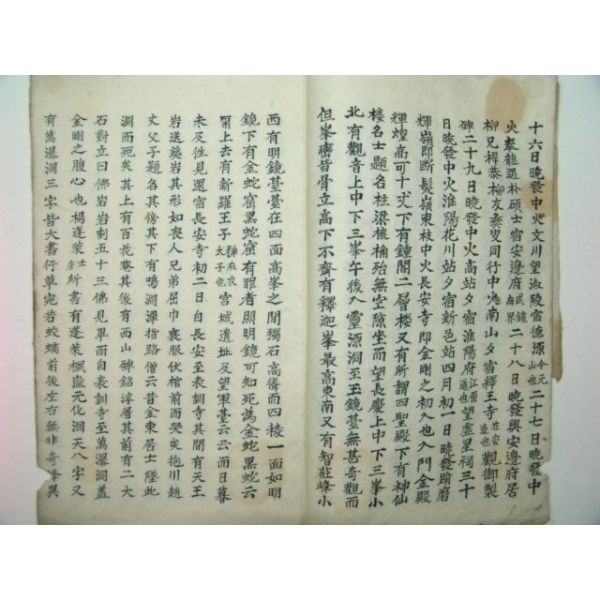 十六日曉發中火文川望淑陵宮德源今元山也二十七日曉發中
火泰龍遇朴碩士宿安邊府武鏡南界二十八日曉發與安邊府居
柳兄稺恭木柳友泰叟同行中火南山夕宿釋王寺在安邊也觀御製
碑二十九日曉發中火高站夕宿淮陽府江原道也望虛星祠三十
日曉發中火淮陽花川站夕宿新邑站四月初一日曉踰磨
輝嶺即斷髮嶺東枝中火長安寺即金剛之初入也入門金殿
輝煌高可十丈下有鍾閣二層樓又有所謂四聖殿下有神仙
樓名士題名柱梁榱桷殆無空隙坐而望長慶上中下三峯小
北有觀音上中下三峯午後入靈源洞至玉鏡臺無甚奇觀而
但峯巒皆骨立高下不齊有釋迦峯最高東南又有智莊峰小
西有明鏡臺臺在四面高峯之間獨石高儔而四稜一面如明
鏡下有金蛇窟黑蛇窟有罪者照明鏡可知死萬金蛇黑蛇云
窟上去有新羅王子麻衣太子也宮城遺址及望軍臺云云而日暮
未及徃見還宿長安寺初二日自長安至表訓寺其間有天王
岩送㷀岩其形如喪人兄弟屈巾衰服伏棺前而哭矣抱川趙
丈父子題名其傍其下有鳴淵潭指路僧云昔金東居士墜此
淵而死矣其上有百花菴其後有西山碑銘浮屠其前有二大
石對立曰佛岩岩刻五十三佛見畢而自表訓寺至萬瀑洞盖
金剛之腹心也楊蓬萊士彥所書有蓬萊楓嶽元化洞天八字又
有萬瀑洞三字皆大書行草宛若蛟螭前後左右無非奇峰異